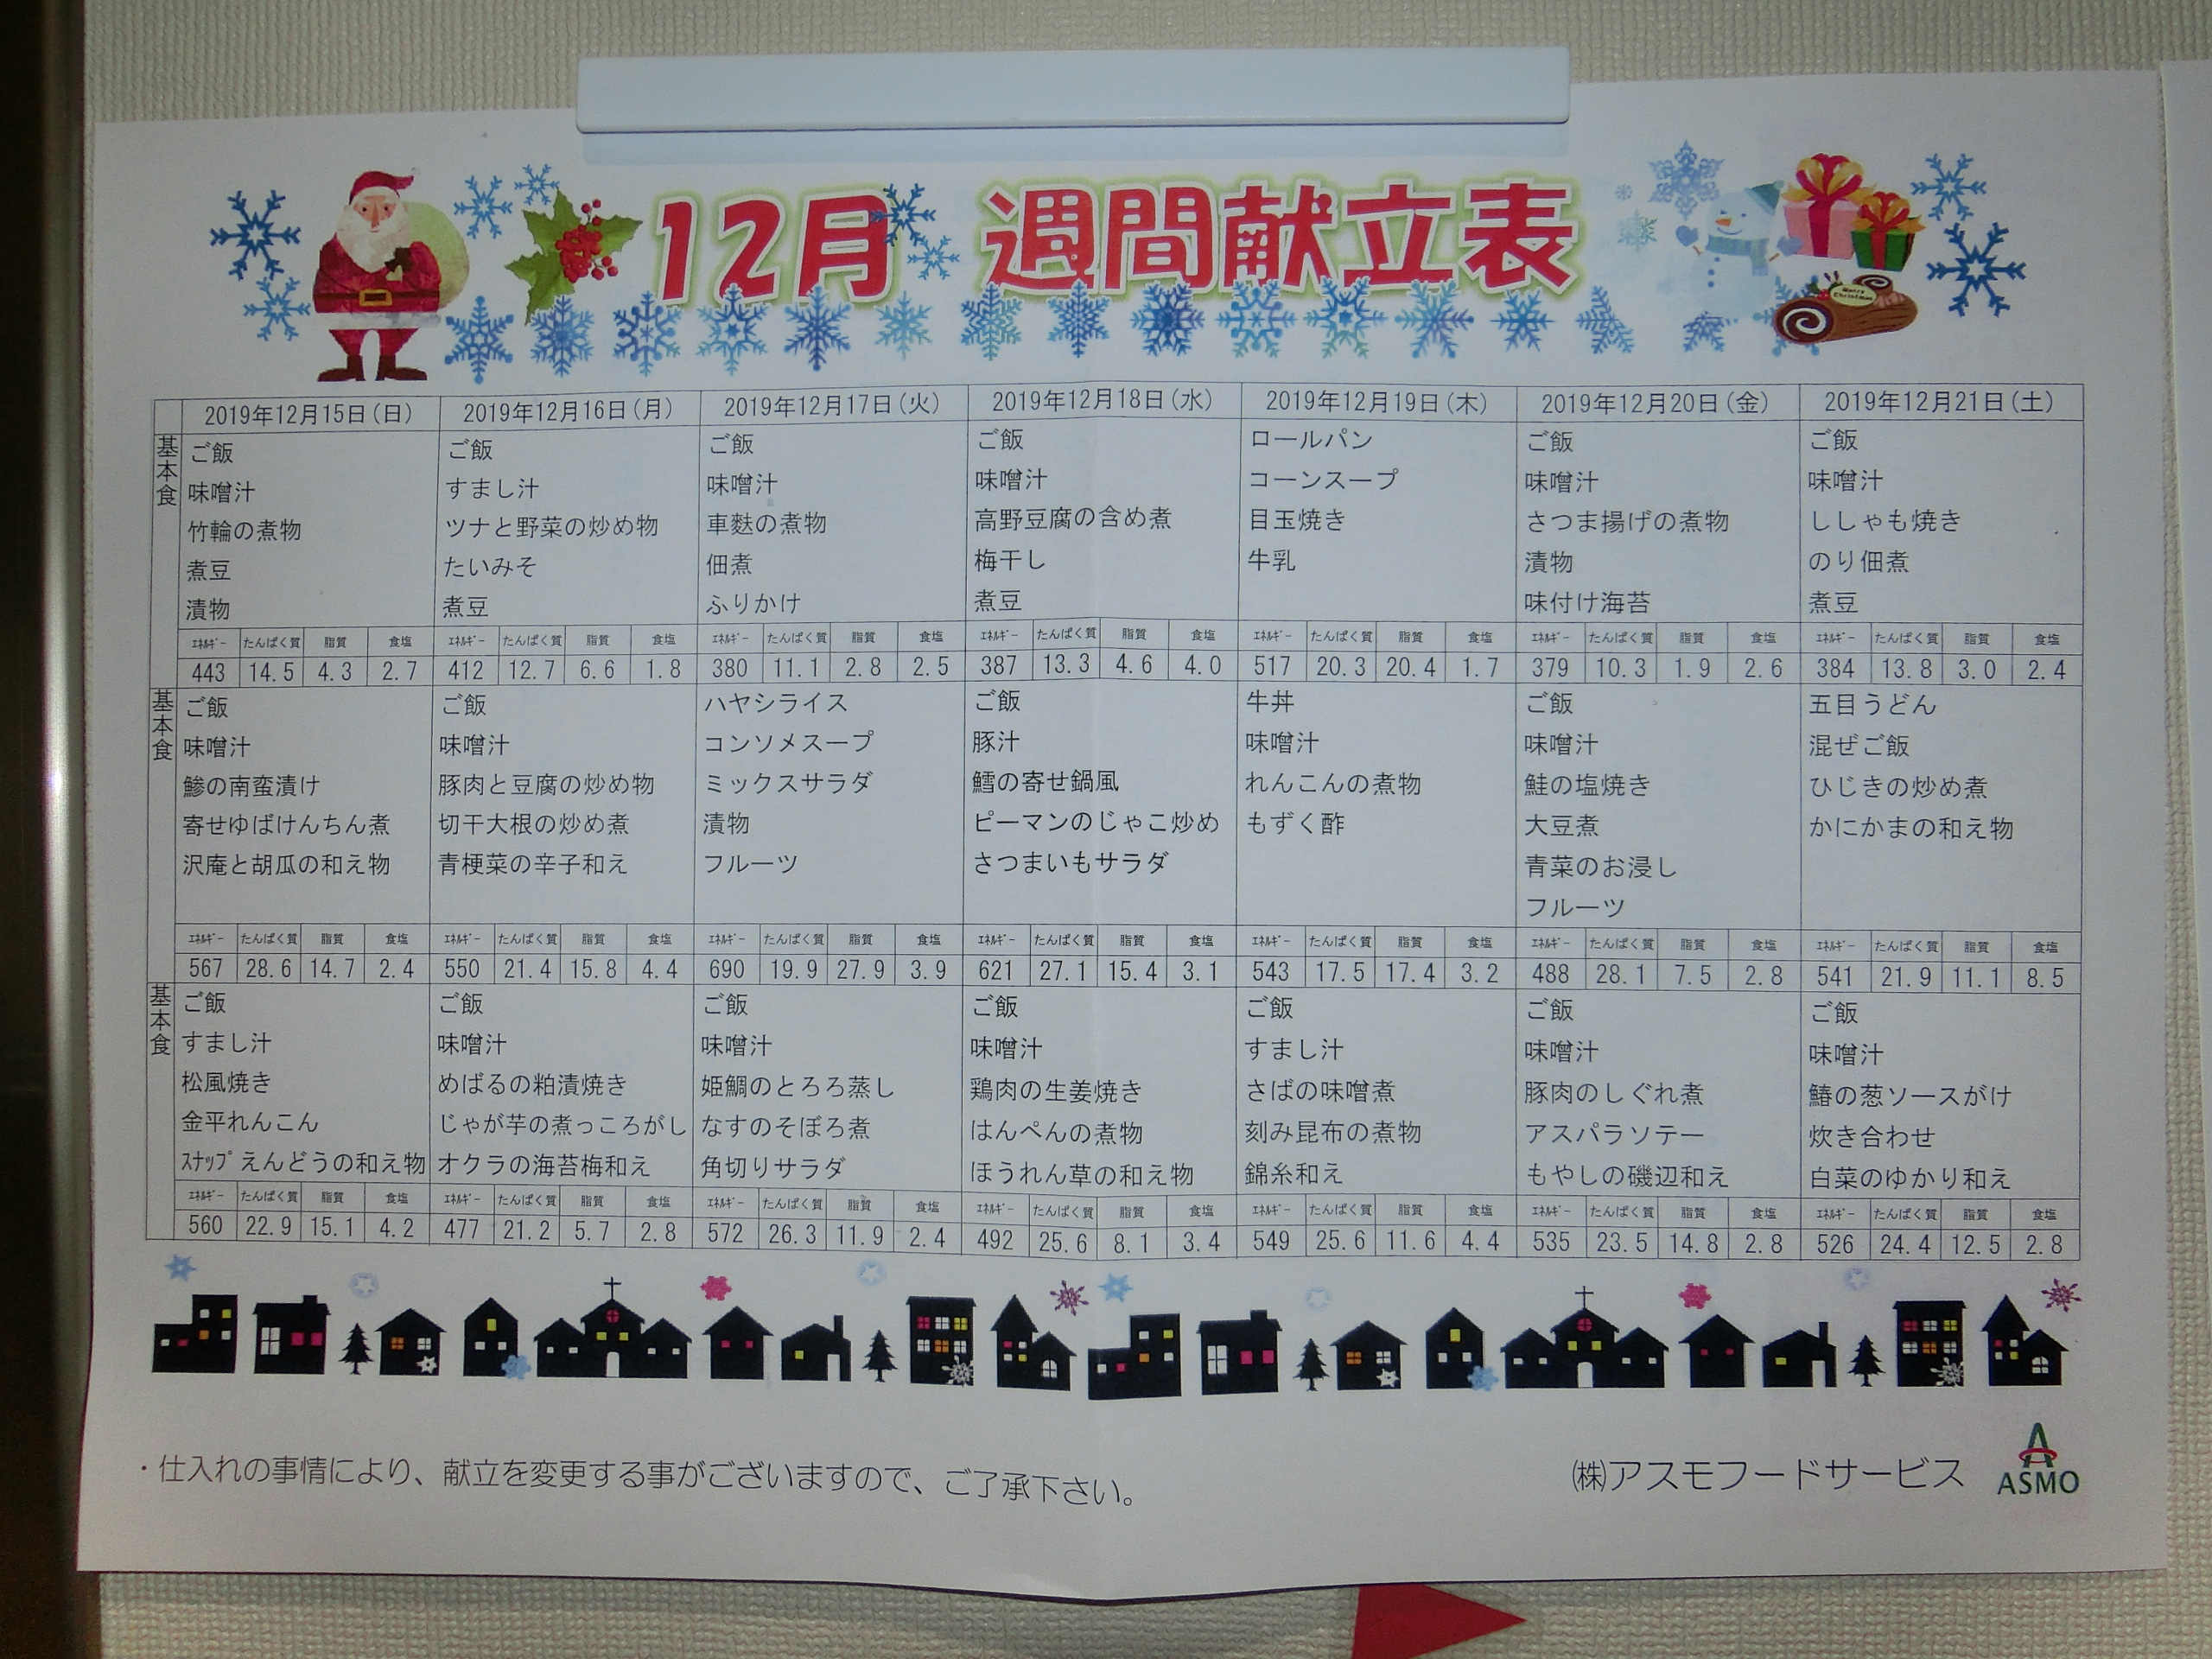 12月 週間献立表
Merry Christmas
2019年12月15日(日) 2019年12月16日(月) 2019年12月17日(火) 2019年12月18日(水) 2019年12月19日(木) 2019年12月20日(金) 2019年12月21日(土)
基本食
ご飯 ご飯 ご飯 ご飯 ロールパン ご飯 ご飯
味噌汁 すまし汁 味噌汁 味噌汁 コーンスープ 味噌汁 味噌汁
竹輪の煮物 ツナと野菜の炒め物 車麩の煮物 高野豆腐の含め煮 目玉焼き さつま揚げの煮物 ししゃも焼き
煮豆 たいみそ 佃煮 梅干し 牛乳 漬物 のり佃煮
漬物 煮豆 ふりかけ 煮豆 味付け海苔 煮豆
ｴﾈﾙｷﾞｰ たんぱく質 脂質 食塩 ｴﾈﾙｷﾞｰ たんぱく質 脂質 食塩 ｴﾈﾙｷﾞｰ たんぱく質 脂質 食塩 ｴﾈﾙｷﾞｰ たんぱく質 脂質 食塩 ｴﾈﾙｷﾞｰ たんぱく質 脂質 食塩 ｴﾈﾙｷﾞｰ たんぱく質 脂質 食塩 ｴﾈﾙｷﾞｰ たんぱく質 脂質 食塩
443 14.5 4.3 2.7 412 12.7 6.6 1.8 380 11.1 2.8 2.5 387 13.3 4.6 4.0 517 20.3 20.4 1.7 379 10.3 1.9 2.6 384 13.8 3.0 2.4
基本食
ご飯 ご飯 ハヤシライス ご飯 牛丼 ご飯 五目うどん
味噌汁 味噌汁 コンソメスープ 豚汁 味噌汁 味噌汁 混ぜご飯
鯵の南蛮漬け 豚肉と豆腐の炒め物 ミックスサラダ 鱈の寄せ鍋風 れんこんの煮物 鮭の塩焼き ひじきの炒め煮
寄せゆばけんちん煮 切干大根の炒め煮 漬物 ピーマンのじゃこ炒め もずく酢 大豆煮 かにかまの和え物
沢庵と胡瓜の和え物 青梗菜の辛子和え フルーツ さつまいもサラダ 青菜のお浸し
フルーツ
ｴﾈﾙｷﾞｰ たんぱく質 脂質 食塩 ｴﾈﾙｷﾞｰ たんぱく質 脂質 食塩 ｴﾈﾙｷﾞｰ たんぱく質 脂質 食塩 ｴﾈﾙｷﾞｰ たんぱく質 脂質 食塩 ｴﾈﾙｷﾞｰ たんぱく質 脂質 食塩 ｴﾈﾙｷﾞｰ たんぱく質 脂質 食塩 ｴﾈﾙｷﾞｰ たんぱく質 脂質 食塩
567 28.6 14.7 2.4 550 21.4 15.8 4.4 690 19.9 27.9 3.9 621 27.1 15.4 3.1 543 17.5 17.4 3.2 488 28.1 7.5 2.8 541 21.9 11.1 8.5
基本食
ご飯 ご飯 ご飯 ご飯 ご飯 ご飯 ご飯
すまし汁 味噌汁 味噌汁 味噌汁 すまし汁 味噌汁 味噌汁
松風焼き めばるの粕漬焼き 姫鯛のとろろ蒸し 鶏肉の生姜焼き さばの味噌煮 豚肉のしぐれ煮 鰆の葱ソースがけ
金平れんこん じゃが芋の煮っころがし なすのそぼろ煮 はんぺんの煮物 刻み昆布の煮物 アスパラソテー 炊き合わせ
ｽﾅｯﾌﾟえんどうの和え物 オクラの海苔梅和え 角切りサラダ ほうれん草の和え物 錦糸和え もやしの磯辺和え 白菜のゆかり和え
ｴﾈﾙｷﾞｰ たんぱく質 脂質 食塩 ｴﾈﾙｷﾞｰ たんぱく質 脂質 食塩 ｴﾈﾙｷﾞｰ たんぱく質 脂質 食塩 ｴﾈﾙｷﾞｰ たんぱく質 脂質 食塩 ｴﾈﾙｷﾞｰ たんぱく質 脂質 食塩 ｴﾈﾙｷﾞｰ たんぱく質 脂質 食塩 ｴﾈﾙｷﾞｰ たんぱく質 脂質 食塩
560 22.9 15.1 4.2 477 21.2 5.7 2.8 572 26.3 11.9 2.4 492 25.6 8.1 3.4 549 25.6 11.6 4.4 535 23.5 14.8 2.8 526 24.4 12.5 2.8
・仕入れの事情により、献立を変更する事がございますので、ご了承下さい。
㈱アスモフードサービス
ASMO